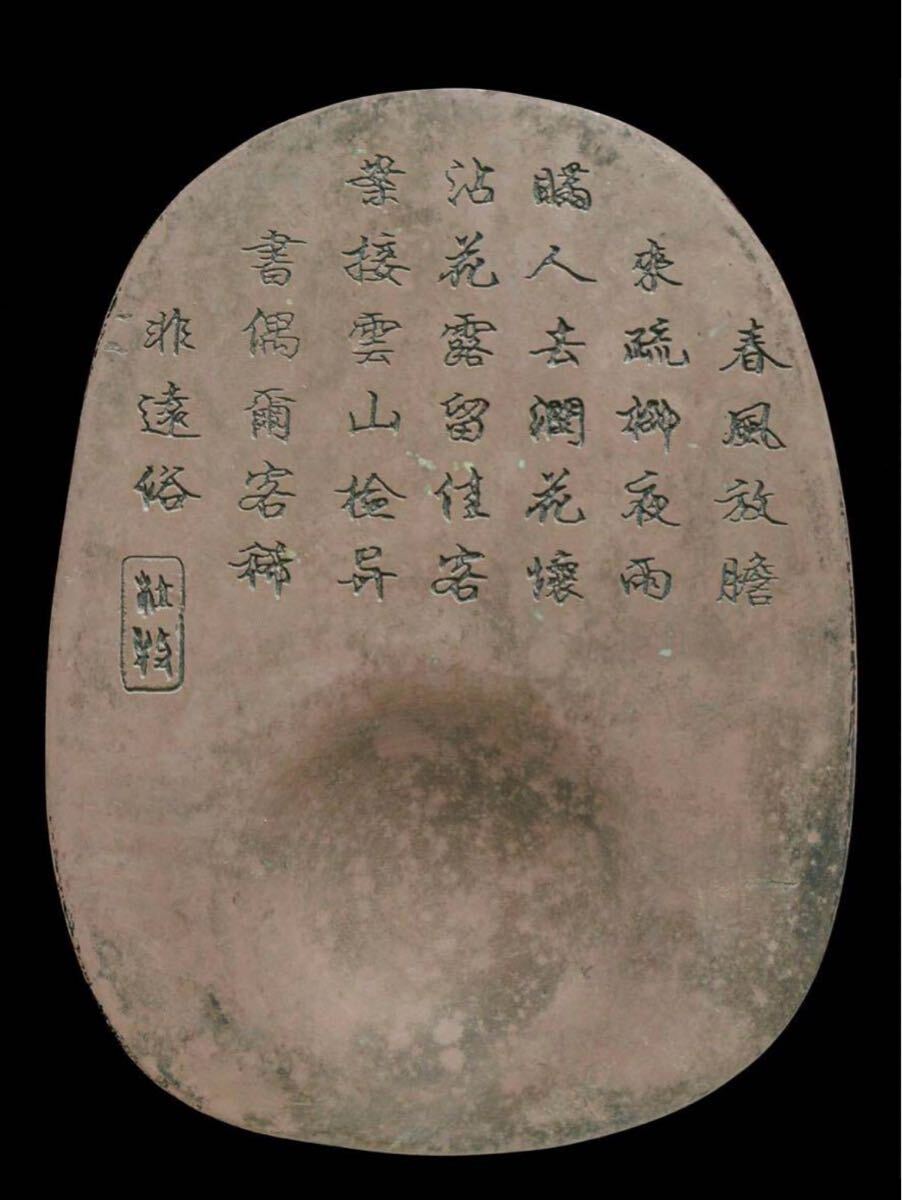 春風放膽
來疏柳夜雨
瞞人去潤花懷
沾花露留佳客
案接雲山檢异
書偶爾客稀
非遠俗